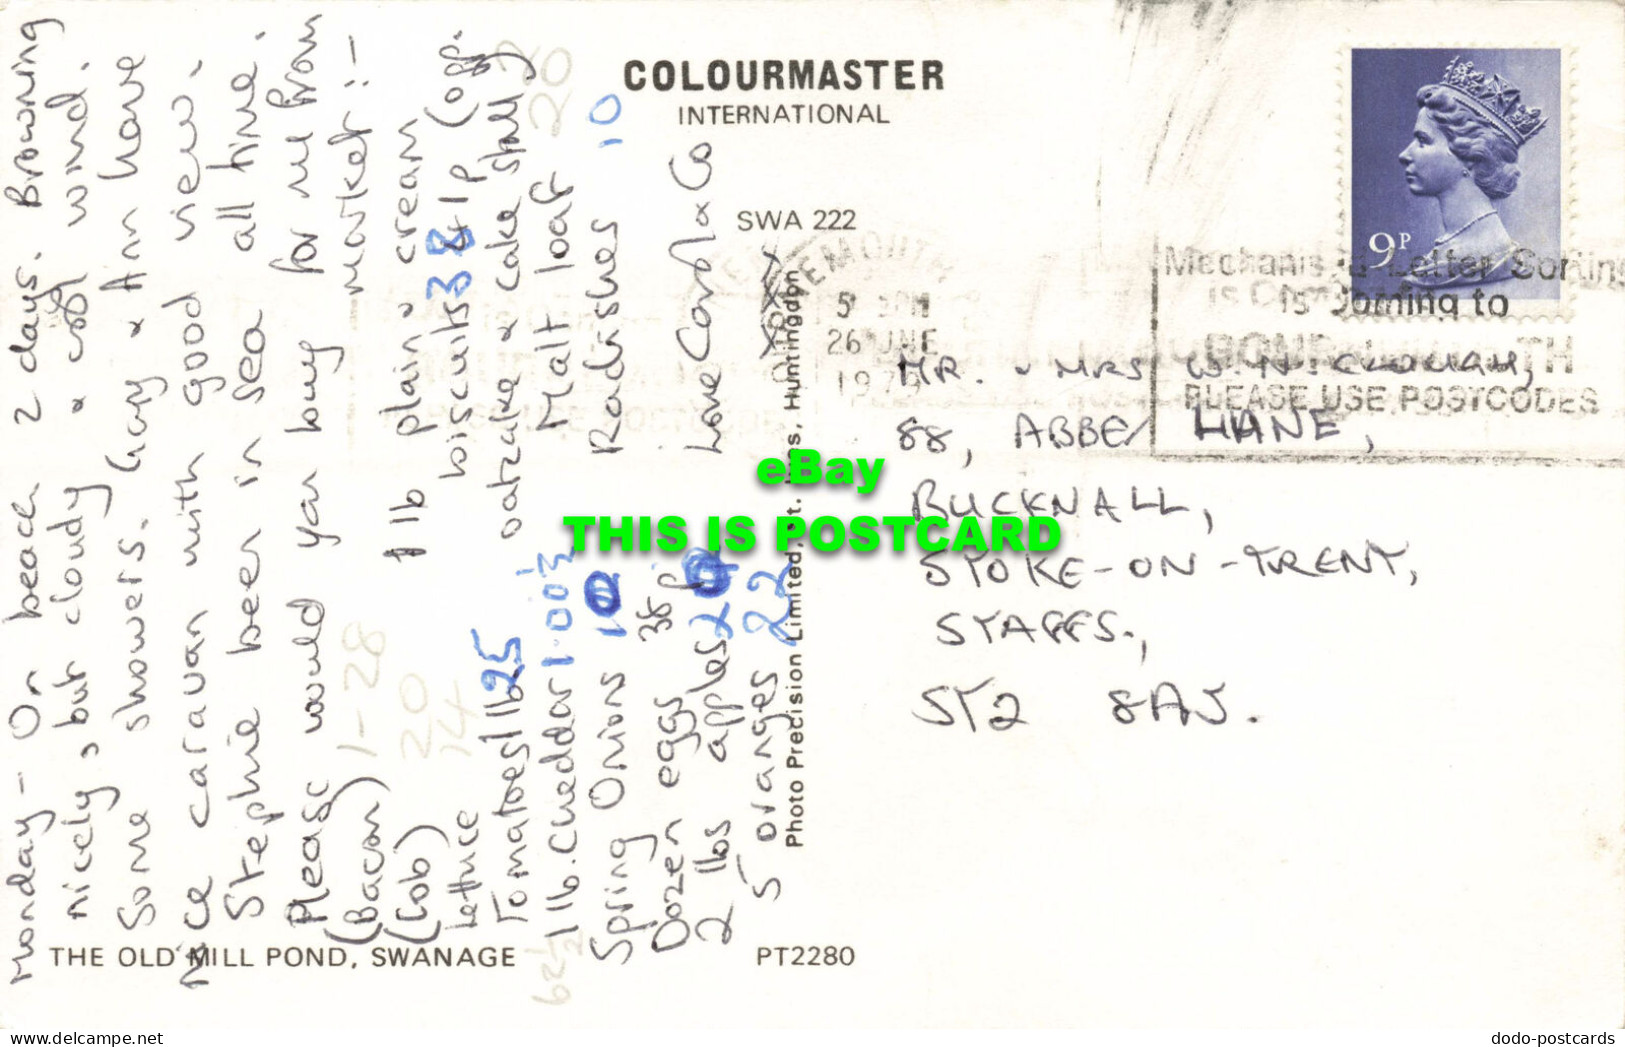 Monday - On beach 2 days. Browning
nicely, but cloudy & cool wind.
Some showers. Gay & Ann have
nice caravan with good view.
Stephie been in sea all time.
Please would you buy for me from
market :-
(Bacon) 1-28
(Cob) 20
Lettuce 14
Tomatoes 1lb 25
1 lb. Cheddar 1.00½
62½
Spring Onions 10
Dozen eggs 38 p
2 lbs apples 20
5 oranges 22
1 lb plain & cream
biscuits 38 41p (opp.
oatcake & cake stall)
Malt loaf 20
Radishes 10
Love Carol & Co
xoxox
COLOURMASTER
INTERNATIONAL
SWA 222
Photo Precision Limited, St. Ives, Huntingdon
THE OLD MILL POND, SWANAGE
PT2280
9P
5 PM
26 JUNE
Mechanised Letter Sorting
is Coming to
BOURNEMOUTH
PLEASE USE POSTCODES
MR. & MRS W. N. CLOWAH,
88, ABBEY LANE,
BUCKNALL,
STOKE-ON-TRENT,
STAFFS.,
ST2 8AJ.
eBay
THIS IS POSTCARD
delcampe.net
dodo-postcards